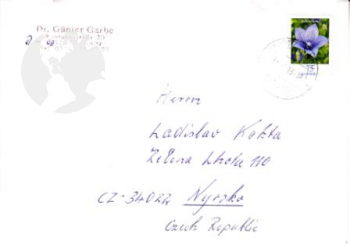 Dr. Günter Garbe
Herrn
Ladislav Kokta
Zelena Lhota 110
CZ-34022 Nyrsko
Czech Republic